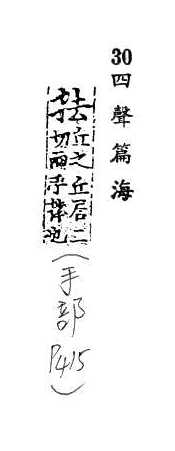 30四聲篇海
抾丘之丘居二
切兩手也
(手部 P415)